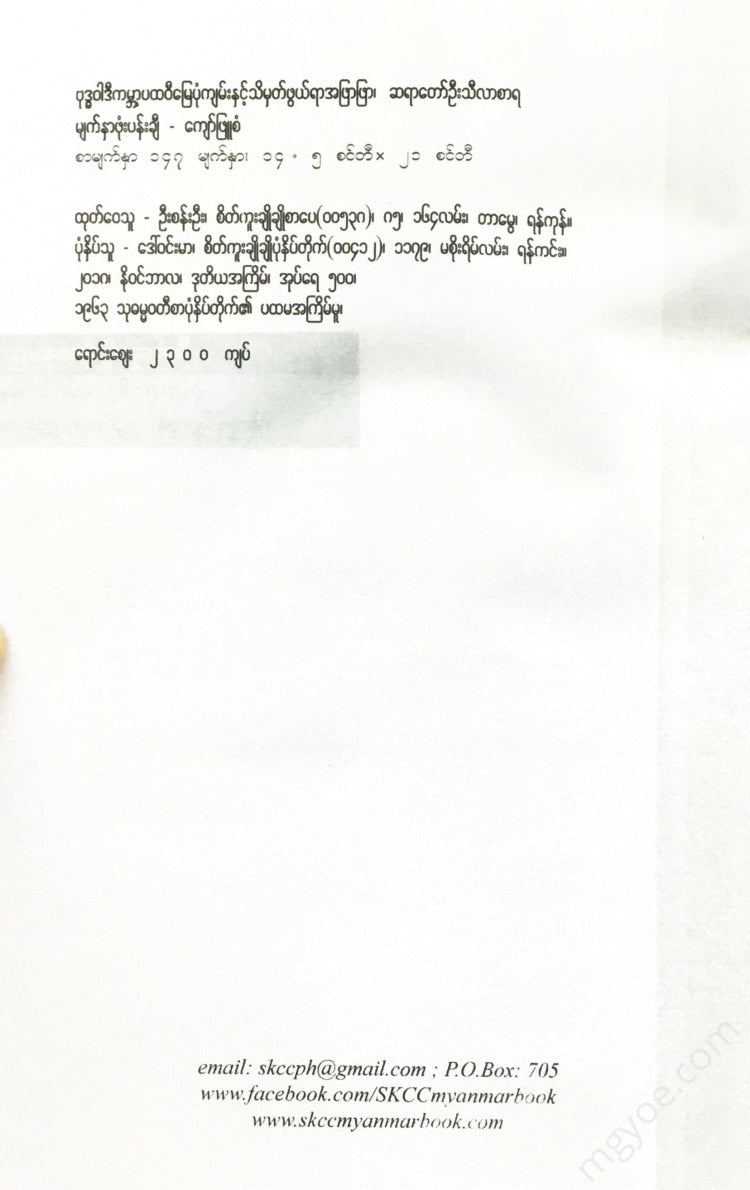 ဗုဒ္ဓဝါဒီကမ္ဘာ့ပထဝီမြေပုံကျမ်းနှင့်သိမှတ်ဖွယ်ရာအဖြာဖြာ၊ ဆရာတော်ဦးသီလာစာရ
မျက်နှာဖုံးပန်းချီ - ကျော်ဖြူစံ
စာမျက်နှာ ၁၄၇ မျက်နှာ၊ ၁၄ . ၅ စင်တီ× ၂၁ စင်တီ
ထုတ်ဝေသူ - ဦးစန်းဦး၊ စိတ်ကူးချိုချိုစာပေ(၀၀၅၃၈)၊ ၈၅၊ ၁၆၄လမ်း၊ တာမွေ၊ ရန်ကုန်။
ပုံနှိပ်သူ - ဒေါ်ဝင်းမာ၊ စိတ်ကူးချိုချိုပုံနှိပ်တိုက်(၀၀၄၁၂)၊ ၁၁၇၉၊ မစိုးရိမ်လမ်း၊ ရန်ကင်း။
၂၀၁၈၊ နိုဝင်ဘာလ၊ ဒုတိယအကြိမ်၊ အုပ်ရေ ၅၀၀၊
၁၉၆၃ သုဓမ္မဝတီစာပုံနှိပ်တိုက်၏ ပထမအကြိမ်မူ၊
ရောင်းဈေး ၂ ၃ ၀ ၀ ကျပ်
email: skccph@gmail.com ; P.O.Box: 705
www.facebook.com/SKCCmyanmarbook
www.skccmyanmarbook.com
mgyoe.com